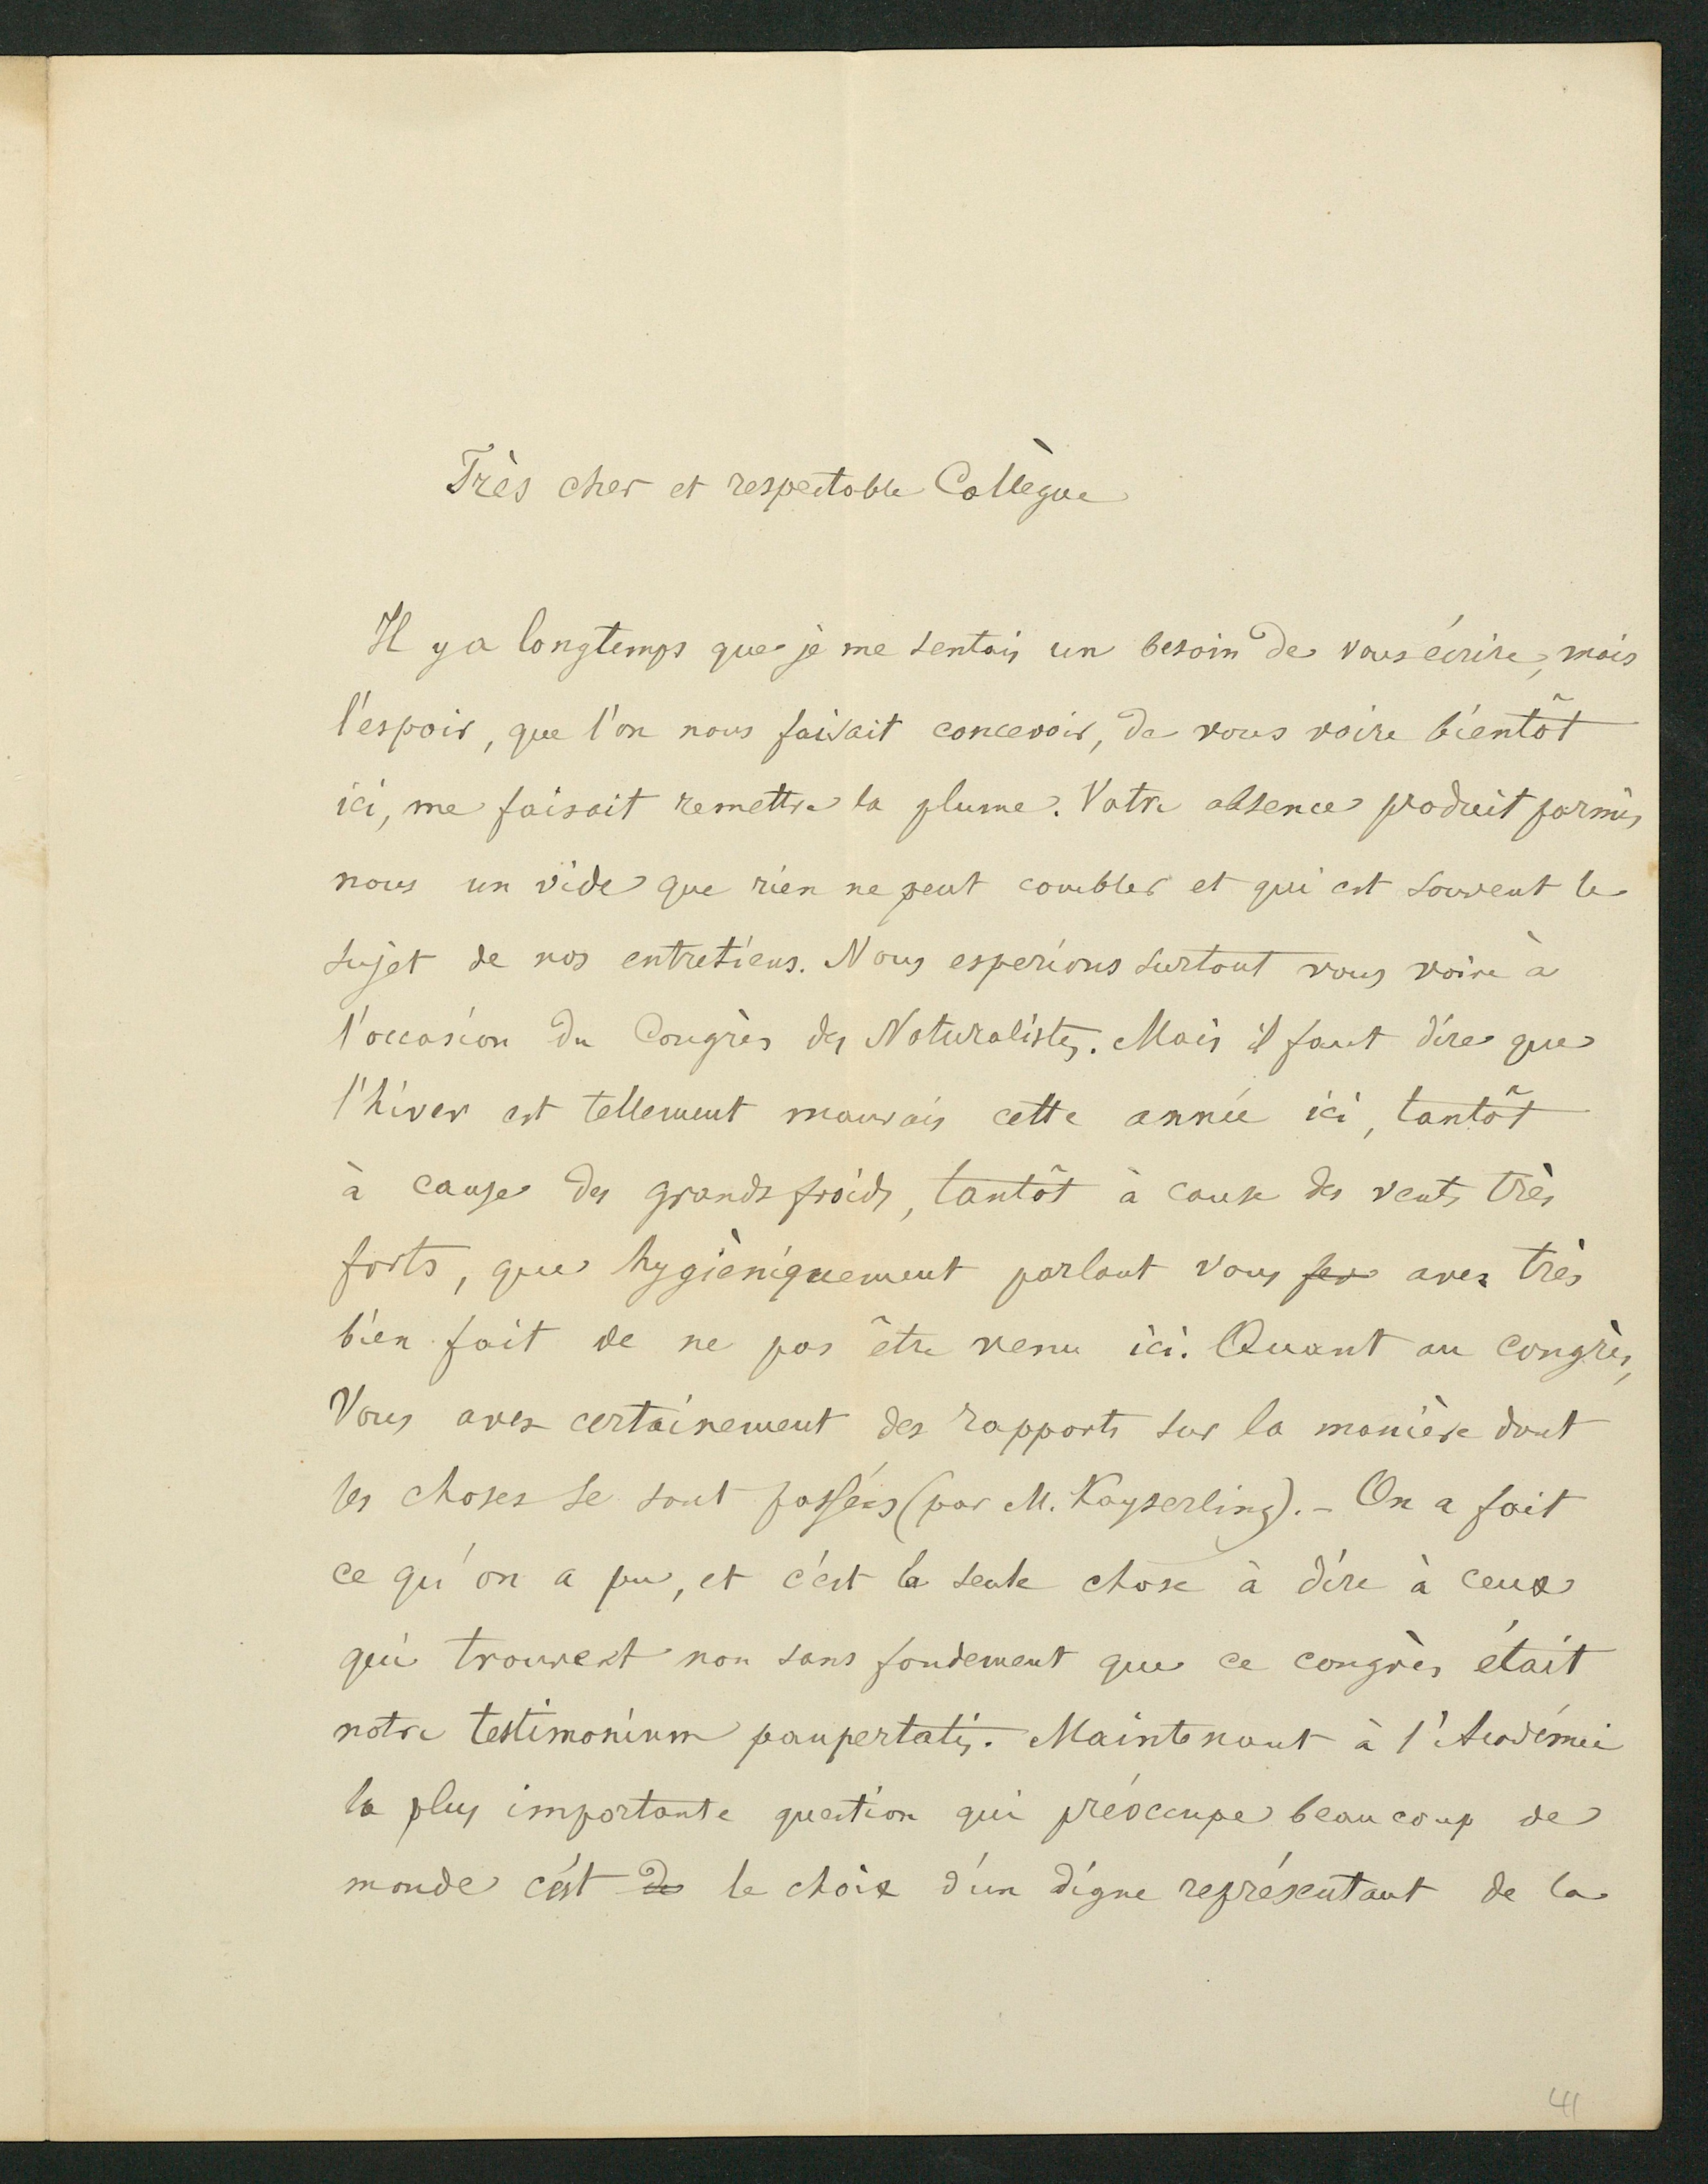 Très cher et respectable Collègue
Il y a longtemps que je me sentais un besoin de vous écrire, mais
l'espoir, que l'on nous faisait concevoir, de vous voire bientôt
ici, me faisait remettre la plume. Votre absence produit parmis
nous un vide que rien ne peut combler et qui est souvent le
sujet de nos entretiens. Nous esperions surtout vous voire à
l'occasion du Congrès des Naturalistes. Mais il faut dire que
l'hiver est tellement mauvais cette année ici, tantôt
à cause des grands froids, tantôt à cause des vents très
forts, que hygièniquement parlant vous avez très
bien fait de ne pas être venu ici. Quant au congrès,
Vous avez certainement des rapports sur la manière dont
les choses se sont passées (par M. Kayserling). - On a fait
ce qu'on a pu, et c'est la seule chose à dire à ceux
qui trouvent non sans fondement que ce congrès était
notre testimonium paupertatis. Maintenant à l'Académie
la plus importante question qui préoccupe beaucoup de
monde c'est de le choix d'un digne représentant de la
41